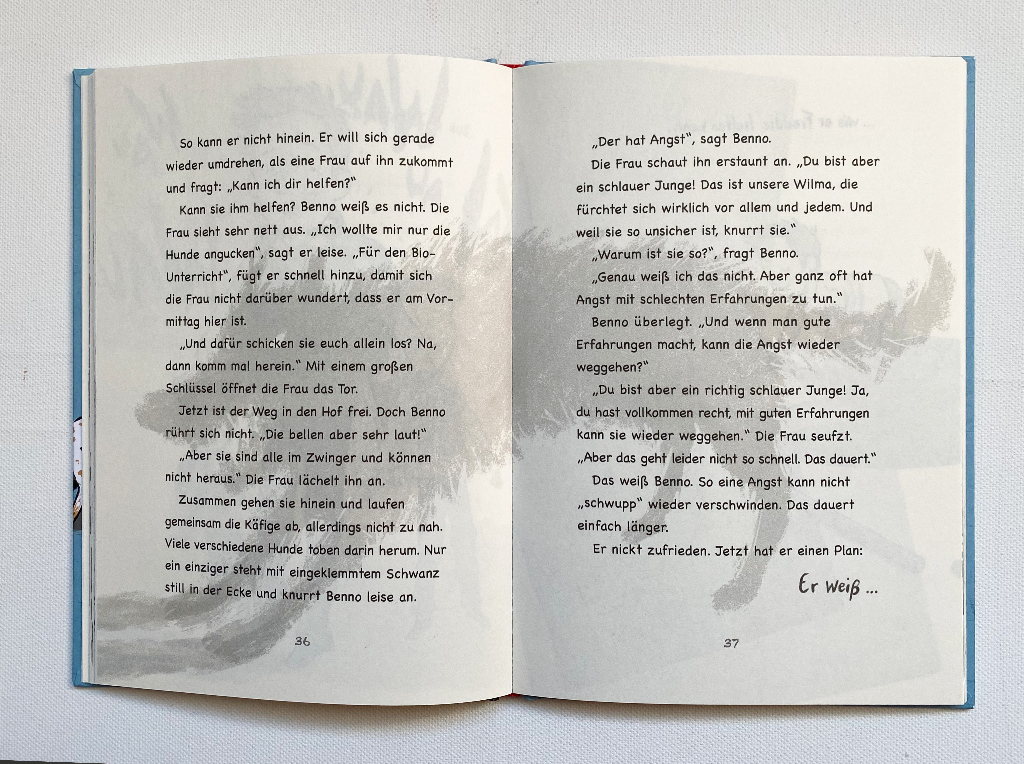 So kann er nicht hinein. Er will sich gerade
wieder umdrehen, als eine Frau auf ihn zukommt
und fragt: „Kann ich dir helfen?“
Kann sie ihm helfen? Benno weiß es nicht. Die
Frau sieht sehr nett aus. „Ich wollte mir nur die
Hunde angucken“, sagt er leise. „Für den Bio-
Unterricht“, fügt er schnell hinzu, damit sich
die Frau nicht darüber wundert, dass er am Vor-
mittag hier ist.
„Und dafür schicken sie euch allein los? Na,
dann komm mal herein.“ Mit einem großen
Schlüssel öffnet die Frau das Tor.
Jetzt ist der Weg in den Hof frei. Doch Benno
rührt sich nicht. „Die bellen aber sehr laut!“
„Aber sie sind alle im Zwinger und können
nicht heraus.“ Die Frau lächelt ihn an.
Zusammen gehen sie hinein und laufen
gemeinsam die Käfige ab, allerdings nicht zu nah.
Viele verschiedene Hunde toben darin herum. Nur
ein einziger steht mit eingeklemmtem Schwanz
still in der Ecke und knurrt Benno leise an.
36
„Der hat Angst“, sagt Benno.
Die Frau schaut ihn erstaunt an. „Du bist aber
ein schlauer Junge! Das ist unsere Wilma, die
fürchtet sich wirklich vor allem und jedem. Und
weil sie so unsicher ist, knurrt sie.“
„Warum ist sie so?“, fragt Benno.
„Genau weiß ich das nicht. Aber ganz oft hat
Angst mit schlechten Erfahrungen zu tun.“
Benno überlegt. „Und wenn man gute
Erfahrungen macht, kann die Angst wieder
weggehen?“
„Du bist aber ein richtig schlauer Junge! Ja,
du hast vollkommen recht, mit guten Erfahrungen
kann sie wieder weggehen.“ Die Frau seufzt.
„Aber das geht leider nicht so schnell. Das dauert.“
Das weiß Benno. So eine Angst kann nicht
„schwupp“ wieder verschwinden. Das dauert
einfach länger.
Er nickt zufrieden. Jetzt hat er einen Plan:
Er weiß ...
37